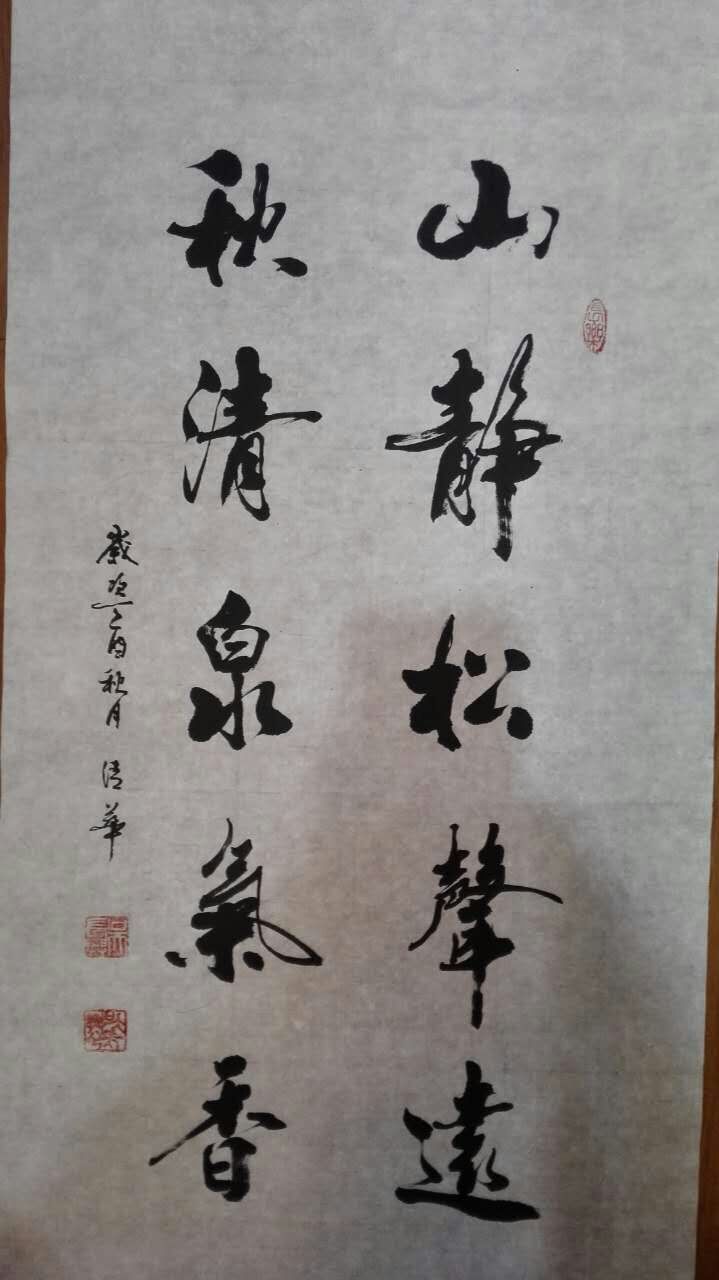 山靜松聲遠
秋清泉氣香
歲次丁酉秋月清華